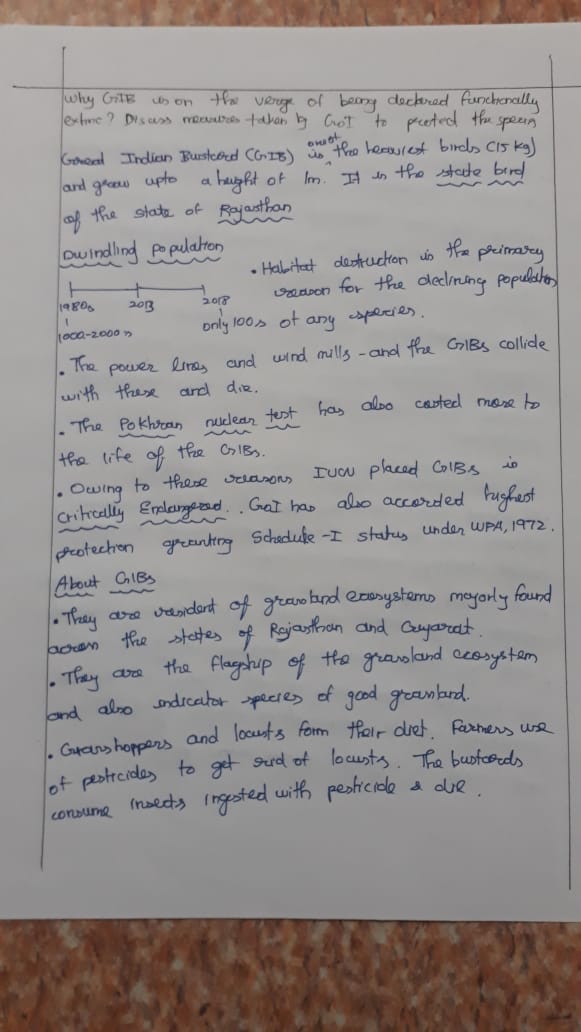 Why GIB is on the verge of being declared functionally
extinc? Discuss measures taken by GoI to protect the species
Great Indian Bustard (GIB) is one of the heaviest birds (15 kg)
and grow upto a height of 1m. It is the state bird
of the state of Rajasthan
Dwindling Population
1980s 2013 2018
1000-2000s only 100s
• Habitat destruction is the primary
reason for the declining population
of any species.
• The power lines and wind mills - and the GIBs collide
with these and die.
• The Pokhran nuclear test has also costed more to
the life of the GIBs.
• Owing to these reasons IUCN placed GIBs in
Critically Endangered. GoI has also accorded highest
protection granting Schedule-I status under WPA, 1972.
About GIBs
• They are resident of grassland ecosystems majorly found
across the states of Rajasthan and Gujarat.
• They are the flagship of the grassland ecosystem
and also indicator species of good grassland.
• Grasshoppers and locusts form their diet. Farmers use
of pesticides to get rid of locusts. The bustards
consume insects ingested with pesticide & die.